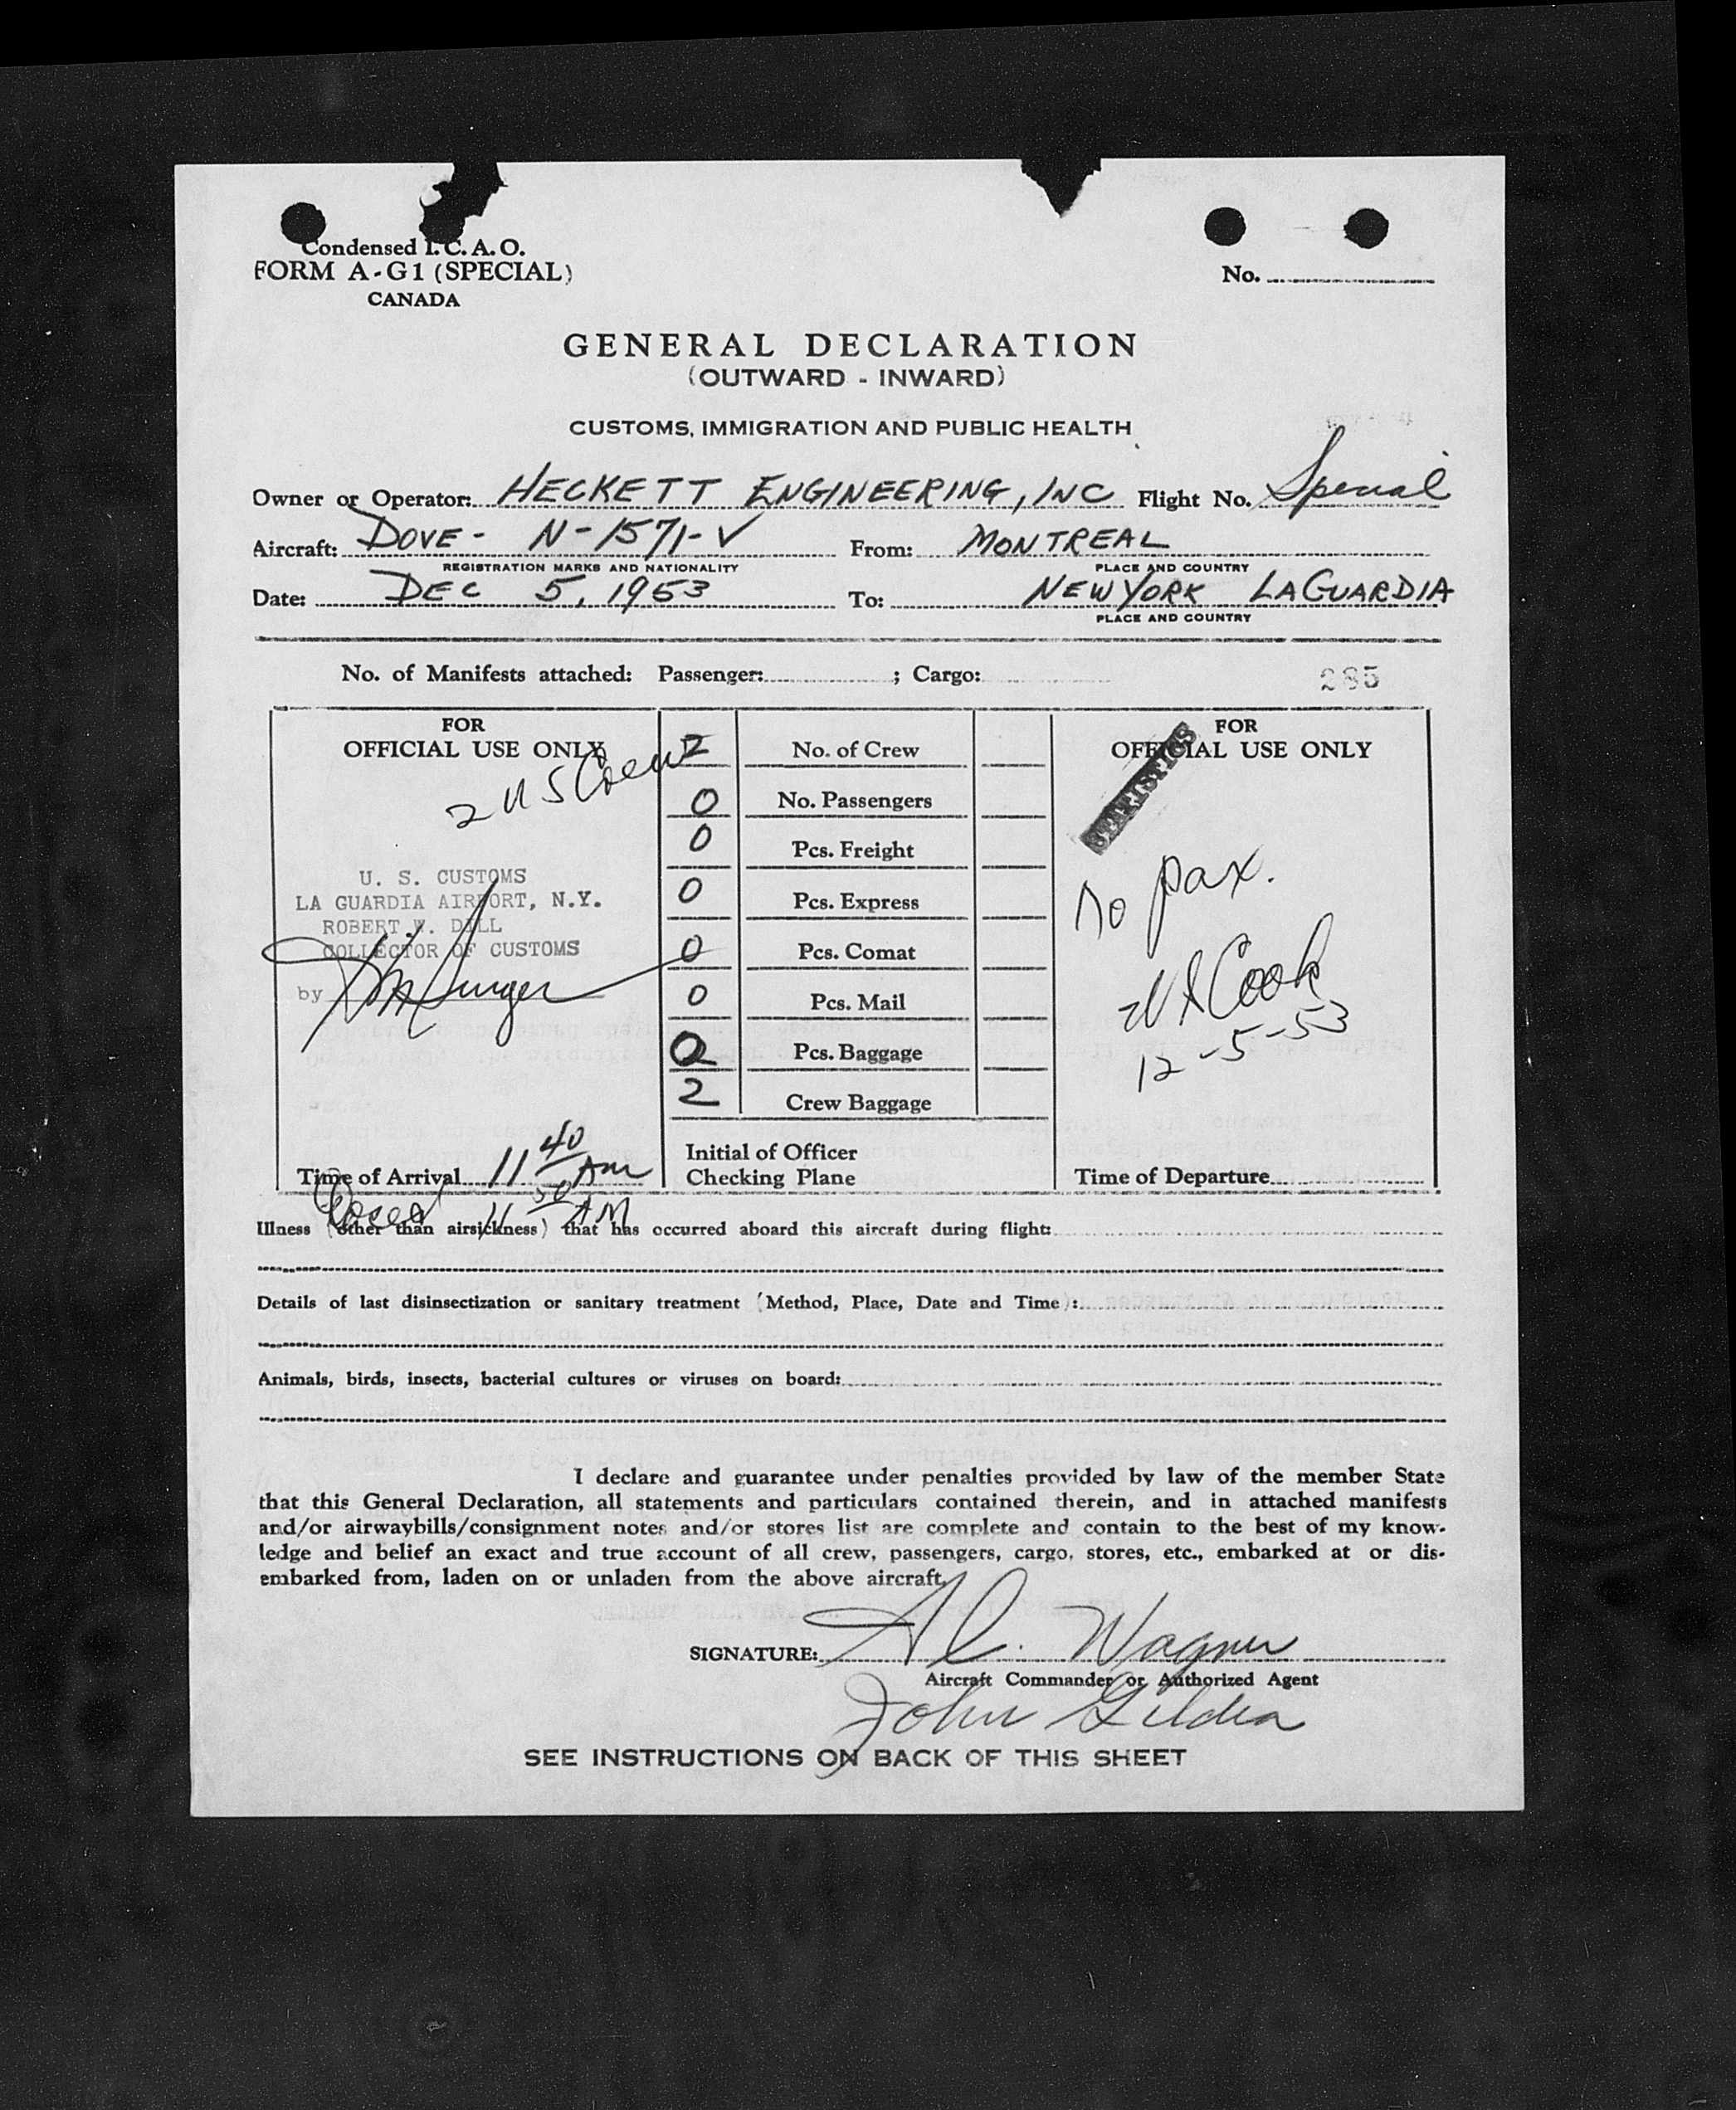 Condensed I. C. A. O.
FORM A-G1 (SPECIAL)
CANADA
No.
GENERAL DECLARATION
(OUTWARD - INWARD)
CUSTOMS, IMMIGRATION AND PUBLIC HEALTH
Owner or Operator: HECKETT ENGINEERING, INC Flight No. Special
Aircraft: DOVE - N-1571-V From: MONTREAL
REGISTRATION MARKS AND NATIONALITY PLACE AND COUNTRY
Date: DEC 5, 1953 To: NEW YORK LAGUARDIA
PLACE AND COUNTRY
No. of Manifests attached: Passenger: ; Cargo:
285
FOR
OFFICIAL USE ONLY
2 US Crew
U. S. CUSTOMS
LA GUARDIA AIRPORT, N.Y.
ROBERT W. DILL
COLLECTOR OF CUSTOMS
by
Time of Arrival 11 40 AM
Closed 11 50 AM
2 No. of Crew
0 No. Passengers
0 Pcs. Freight
0 Pcs. Express
0 Pcs. Comat
0 Pcs. Mail
0 Pcs. Baggage
2 Crew Baggage
Initial of Officer
Checking Plane
FOR
OFFICIAL USE ONLY
STATISTICS
No pax.
Cook
12-5-53
Time of Departure
Illness (other than airsickness) that has occurred aboard this aircraft during flight:
Details of last disinsectization or sanitary treatment (Method, Place, Date and Time):
Animals, birds, insects, bacterial cultures or viruses on board:
I declare and guarantee under penalties provided by law of the member State
that this General Declaration, all statements and particulars contained therein, and in attached manifests
and/or airwaybills/consignment notes and/or stores list are complete and contain to the best of my know-
ledge and belief an exact and true account of all crew, passengers, cargo, stores, etc., embarked at or dis-
embarked from, laden on or unladen from the above aircraft.
SIGNATURE: Al. Wagner
Aircraft Commander or Authorized Agent
John Gildea
SEE INSTRUCTIONS ON BACK OF THIS SHEET